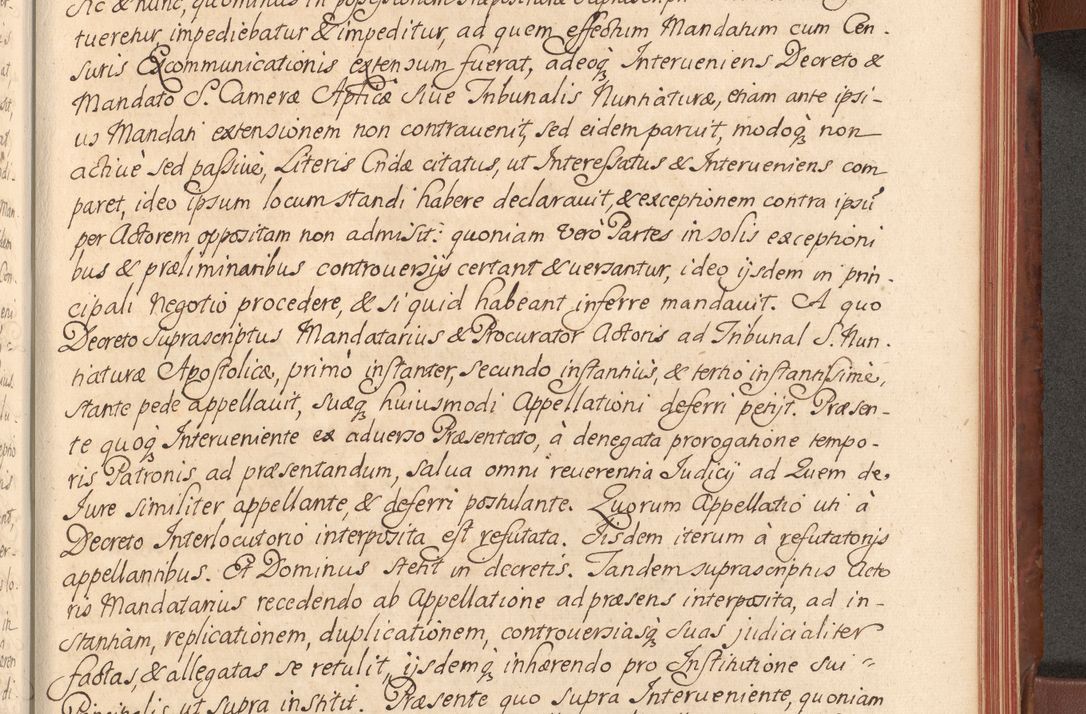 tueretur impediebatur & impeditur, ad quem effectum Mandatum cum Cen-
suris Excommunicationis extensum fuerat, adeoq; Interueniens Decreto &
Mandato S. Cameræ Aplicæ siue Tribunalis Nuntiaturæ, etiam ante ipsi-
us Mandati extensionem non contrauenit, sed eidem paruit, modoq; non
activè sed passivè, Literis Cridæ citatus, ut Interessatus & Interueniens com
paret, ideo ipsum locum standi habere declarauit, & exceptionem contra ipsū
per Actorem oppositam non admisit: quoniam verò Partes in solis exceptioni
bus & præliminaribus controversijs certant & versantur, ideo ijsdem in prin-
cipali Negotio procedere, & si quid habeant inferre mandauit. A quo
Decreto suprascriptus Mandatarius & Procurator Actoris ad Tribunal S. Nun-
tiaturæ Apostolicæ, primò instanter, secundo instantius, & tertiò instantissimè,
stante pede appellauit, suæq; huiusmodi Appellationi deferri petijt. Præsen-
te quoq; Interueniente ex adverso Præsentato, à denegata prorogatione tempo-
ris Patronis ad præsentandum, salua omni reuerentia Judicij ad Quem de
Jure similiter appellante, & deferri postulante. Quorum Appellatio uti à
Decreto Interlocutorio interposita est refutata. Iisdem iterum à refutatorijs
appellantibus. Et Dominus stetit in decretis. Tandem suprascriptus Acto
ris Mandatarius recedendo ab Appellatione ad præsens interposita, ad in-
stantiam, replicationem, duplicationem, controuersiasq; suas judicialiter
factas, & allegatas se retulit, ijsdemq; inhærendo pro Institutione sui
Principalis ut supra institit. Præsente quo supra Interueniente, quoniam